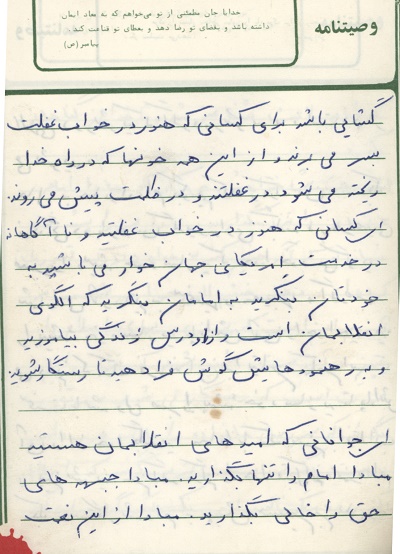 وصیتنامه
خدایا جان مطمئنی از تو می‌خواهم که به معاد ایمان
داشته باشد و بقضای تو رضا دهد و بعطای تو قناعت کند.
پیامبر (ص)
گشایی باشد برای کسانی که هنوز در خواب غفلت
بسر می برند و از این همه خونها که در راه خدا
ریخته می شود در غفلتند و در ظلمت پیش می روند.
ای کسانی که هنوز در خواب غفلتید و ناآگاهانه
در خدمت امریکای جهان خوار می باشید به
خودتان بنگرید به امامان بنگرید که الگوی
انقلابمان است و از او درس زندگی بیاموزید
و به رهنمودهایش گوش فرا دهید تا رستگار شوید.
ای جوانانی که امیدهای انقلابمان هستید
مبادا امام را تنها بگذارید. مبادا جبهه های
حق را خالی بگذارید. مبادا از این نعمت